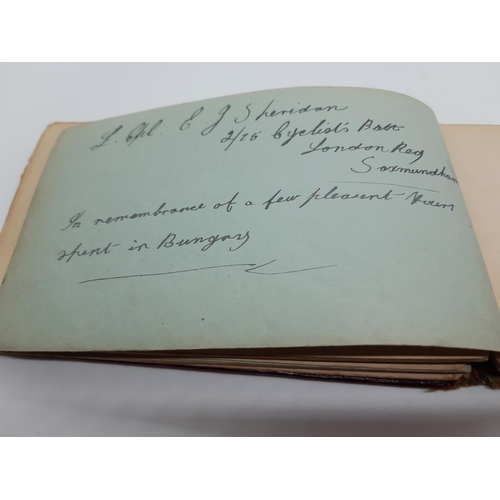 L. Cpl. E J Sheridan
2/25 Cyclist's Batt
London Reg
Saxmundham
In remembrance of a few pleasant Hours
spent in Bungay